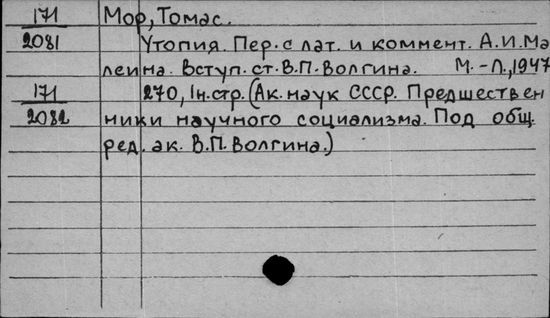 171 Мор, Томас.
2081 Утопия. Пер. с лат. и коммент. А.И.Ма
леина. Вступ. ст. В.П. Волгина. М.-Л., 1947
171 270, 1н. стр. (Ак. наук СССР. Предшествен
2082 ники научного социализма. Под общ.
ред. ак. В.П. Волгина.)